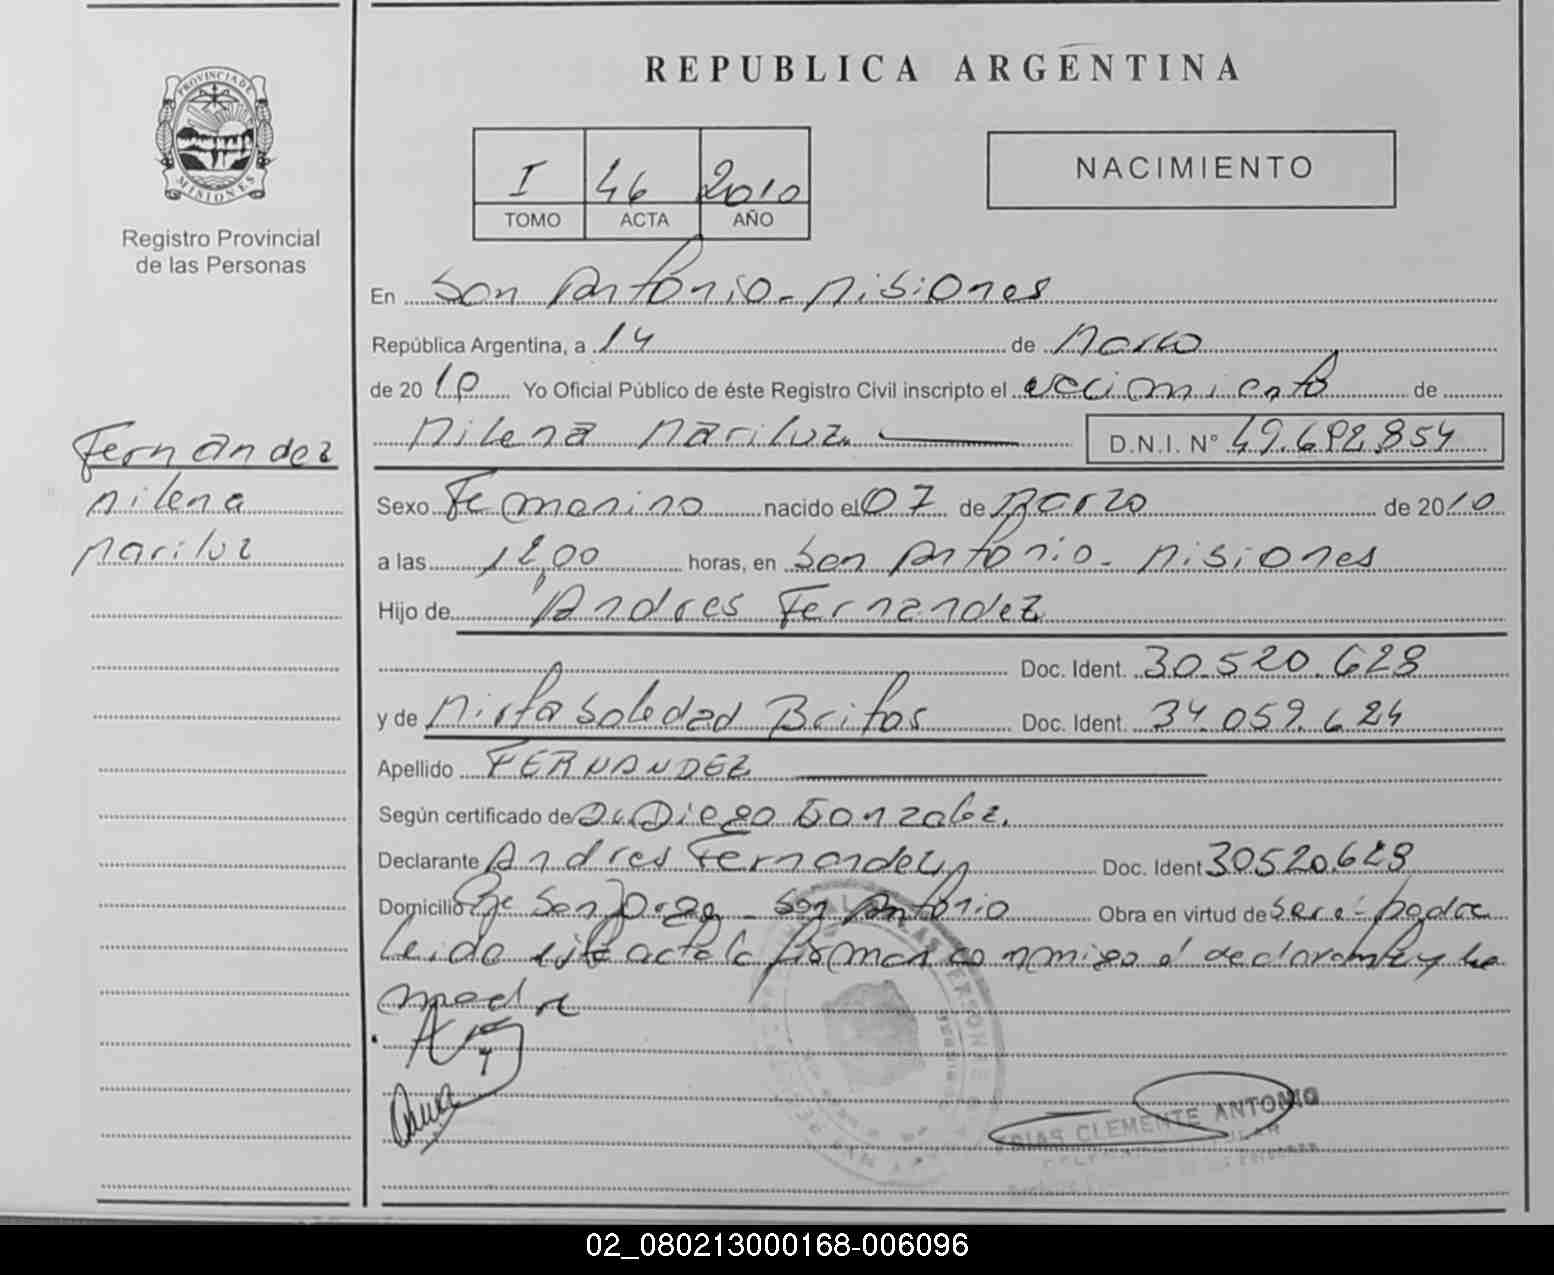 REPUBLICA ARGENTINA
PROVINCIA DE
MISIONES
Registro Provincial
de las Personas
I 46 2010
TOMO ACTA AÑO
NACIMIENTO
En San Antonio - Misiones
República Argentina, a 14 de Marzo
de 2010 Yo Oficial Público de éste Registro Civil inscripto el nacimiento de
Milena Mariluz D.N.I. Nº 49.692.854
Fernandez
Milena
Mariluz
Sexo Femenino nacido el 07 de Marzo de 2010
a las 12,00 horas, en San Antonio - Misiones
Hijo de Andres Fernandez
Doc. Ident. 30.520.628
y de Mirta Soledad Britos Doc. Ident. 34.059.624
Apellido FERNANDEZ
Según certificado de Dr. Diego Gonzalez.
Declarante Andres Fernandez Doc. Ident 30520.628
Domicilio San Jorge - San Antonio Obra en virtud de ser el padre
Leida este acta la firman conmigo el declarante y la
madre
CLEMENTE ANTONIO
02_080213000168-006096